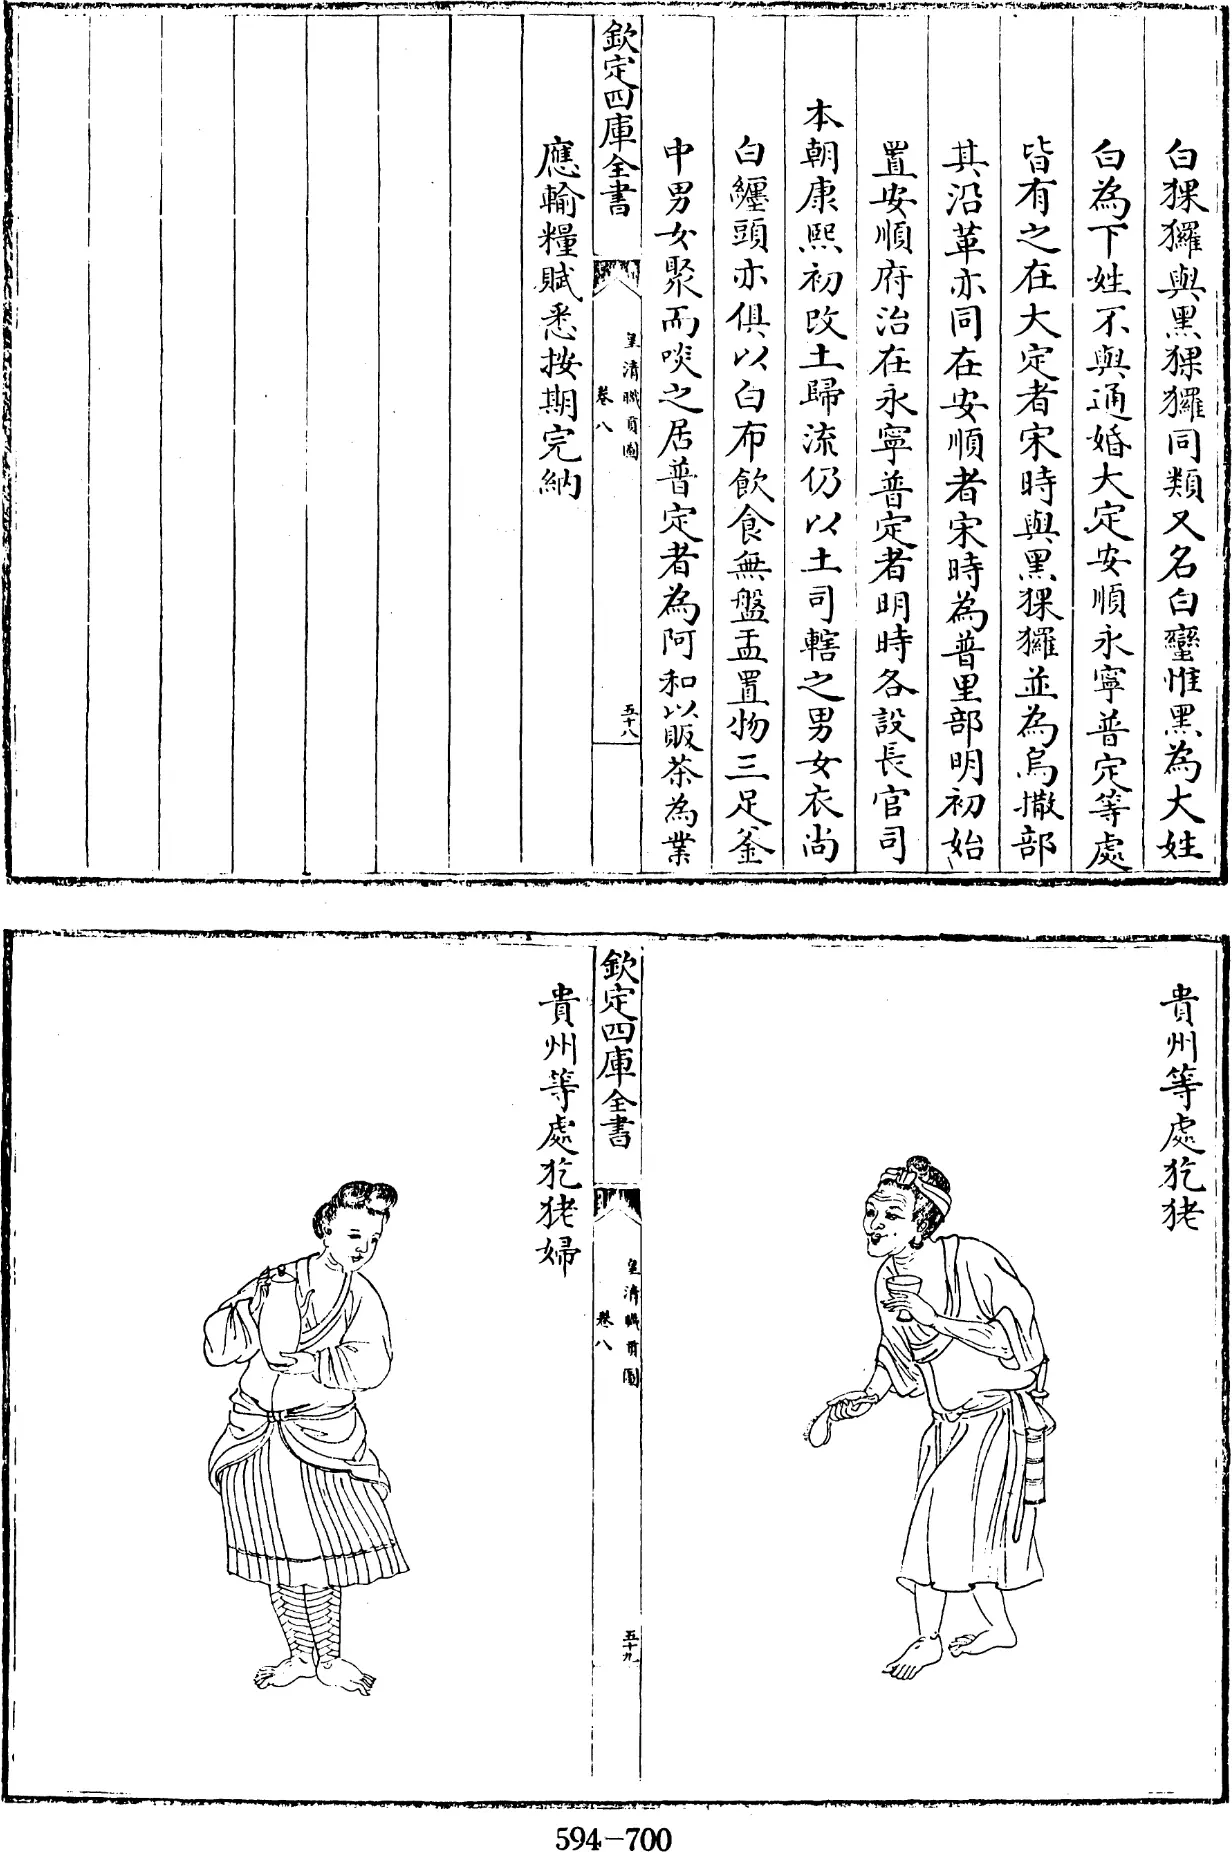 白猓玀與黑猓玀同類又名白蠻惟黑為大姓
白為下姓不與通婚大定安順永寧普定等處
皆有之在大定者宋時與黑猓玀並為烏撒部
其沿革亦同在安順者宋時為普里部明初始
置安順府治在永寧普定者明時各設長官司
本朝康熙初改土歸流仍以土司轄之男女衣尚
白纒頭亦俱以白布飲食無盤盂置物三足釜
中男女聚而啖之居普定者為阿和以販茶為業
欽定四庫全書
皇清職貢圖
卷八
五十八
應輸糧賦悉按期完納
貴州等處犵狫
欽定四庫全書
皇清職貢圖
卷八
五十九
貴州等處犵狫婦
594-700